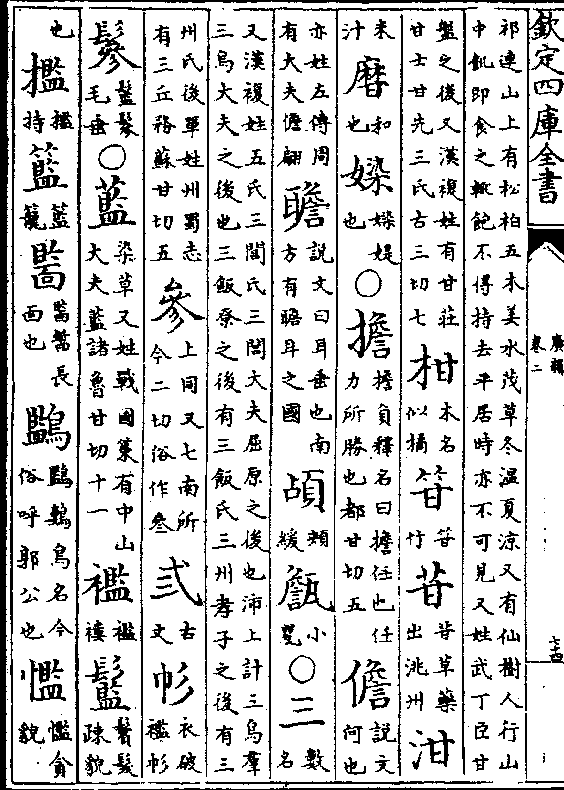 欽定四庫全書
廣韻
卷二
祁連山上有松柏五木美水茂草冬溫夏涼又有仙樹人行山
中飢即食之輒飽不得持去平居時亦不可見又姓武丁臣甘
盤之後又漢複姓有甘莊
甘士甘先三氏古三切七
柑
木名
似橘
苷
竹
苷
苷草藥
出洮州
泔
米
汁
㽍
和
也
媣
媣媞
也
○擔
擔負釋名曰擔任也任
力所勝也都甘切五
儋
說文
何也
亦姓左傳周
有大夫儋翩
聸
說文曰耳垂也南
方有聸耳之國
頰
緩
甔
小
甖
○三
數
名
又漢複姓五氏三閭氏三閭大夫屈原之後也沛上計三烏羣
三烏大夫之後也三飯尞之後有三飯氏三州孝子之後有三
州氏後單姓州蜀志
有三丘務蘇甘切五
參
上同又七南所
今二切俗作叄
弎
古
文
衫
衣破
襤衫
鬖
鬛鬖
毛垂
○藍
染草又姓戰國策有中山
大夫藍諸魯甘切十一
襤
襤
褸
鬛
鬢髮
疎貌
也
㩜
㩜
持
籃
籃
籠
㔋長
面也
鷶鳥名今
俗呼郭公也
懢
懢貪
貌